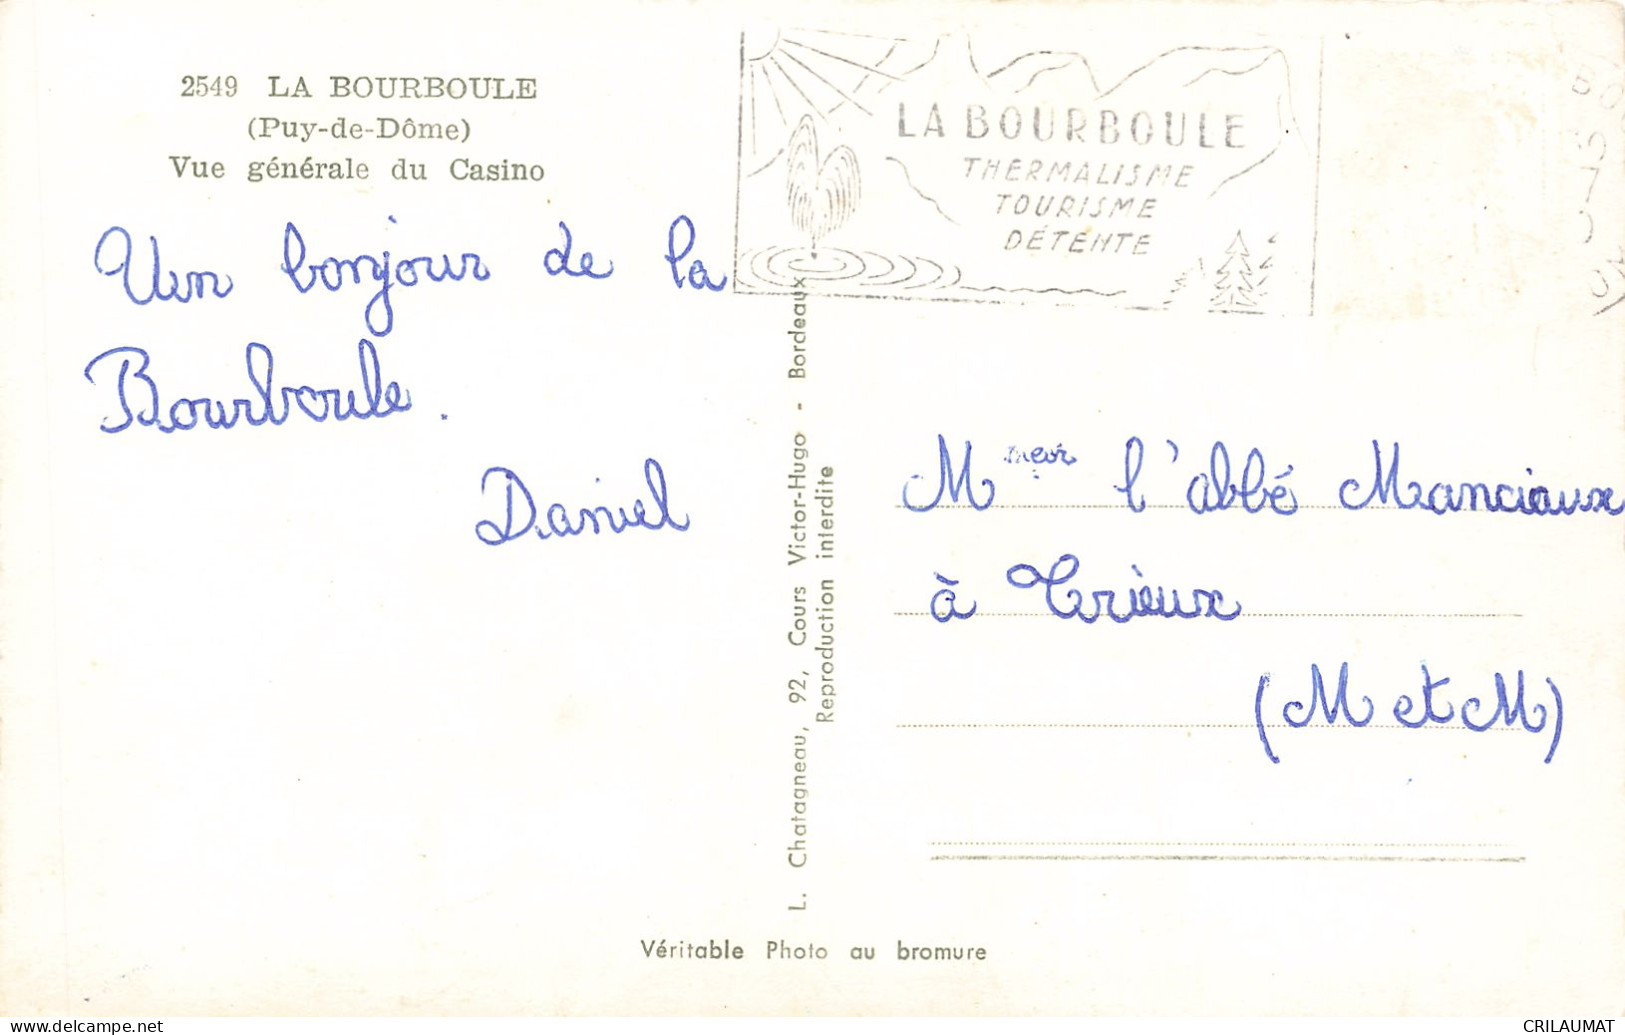 2549 LA BOURBOULE
(Puy-de-Dôme)
Vue générale du Casino
Un bonjour de la
Bourboule.
Daniel
LA BOURBOULE
THERMALISME
TOURISME
DÉTENTE
L. Chatagneau, 92, Cours Victor-Hugo - Bordeaux
Reproduction interdite
Mmeur l'abbé Manciaux
à Trieux
(M et M)
Véritable Photo au bromure
www.delcampe.net
CRILAUMAT